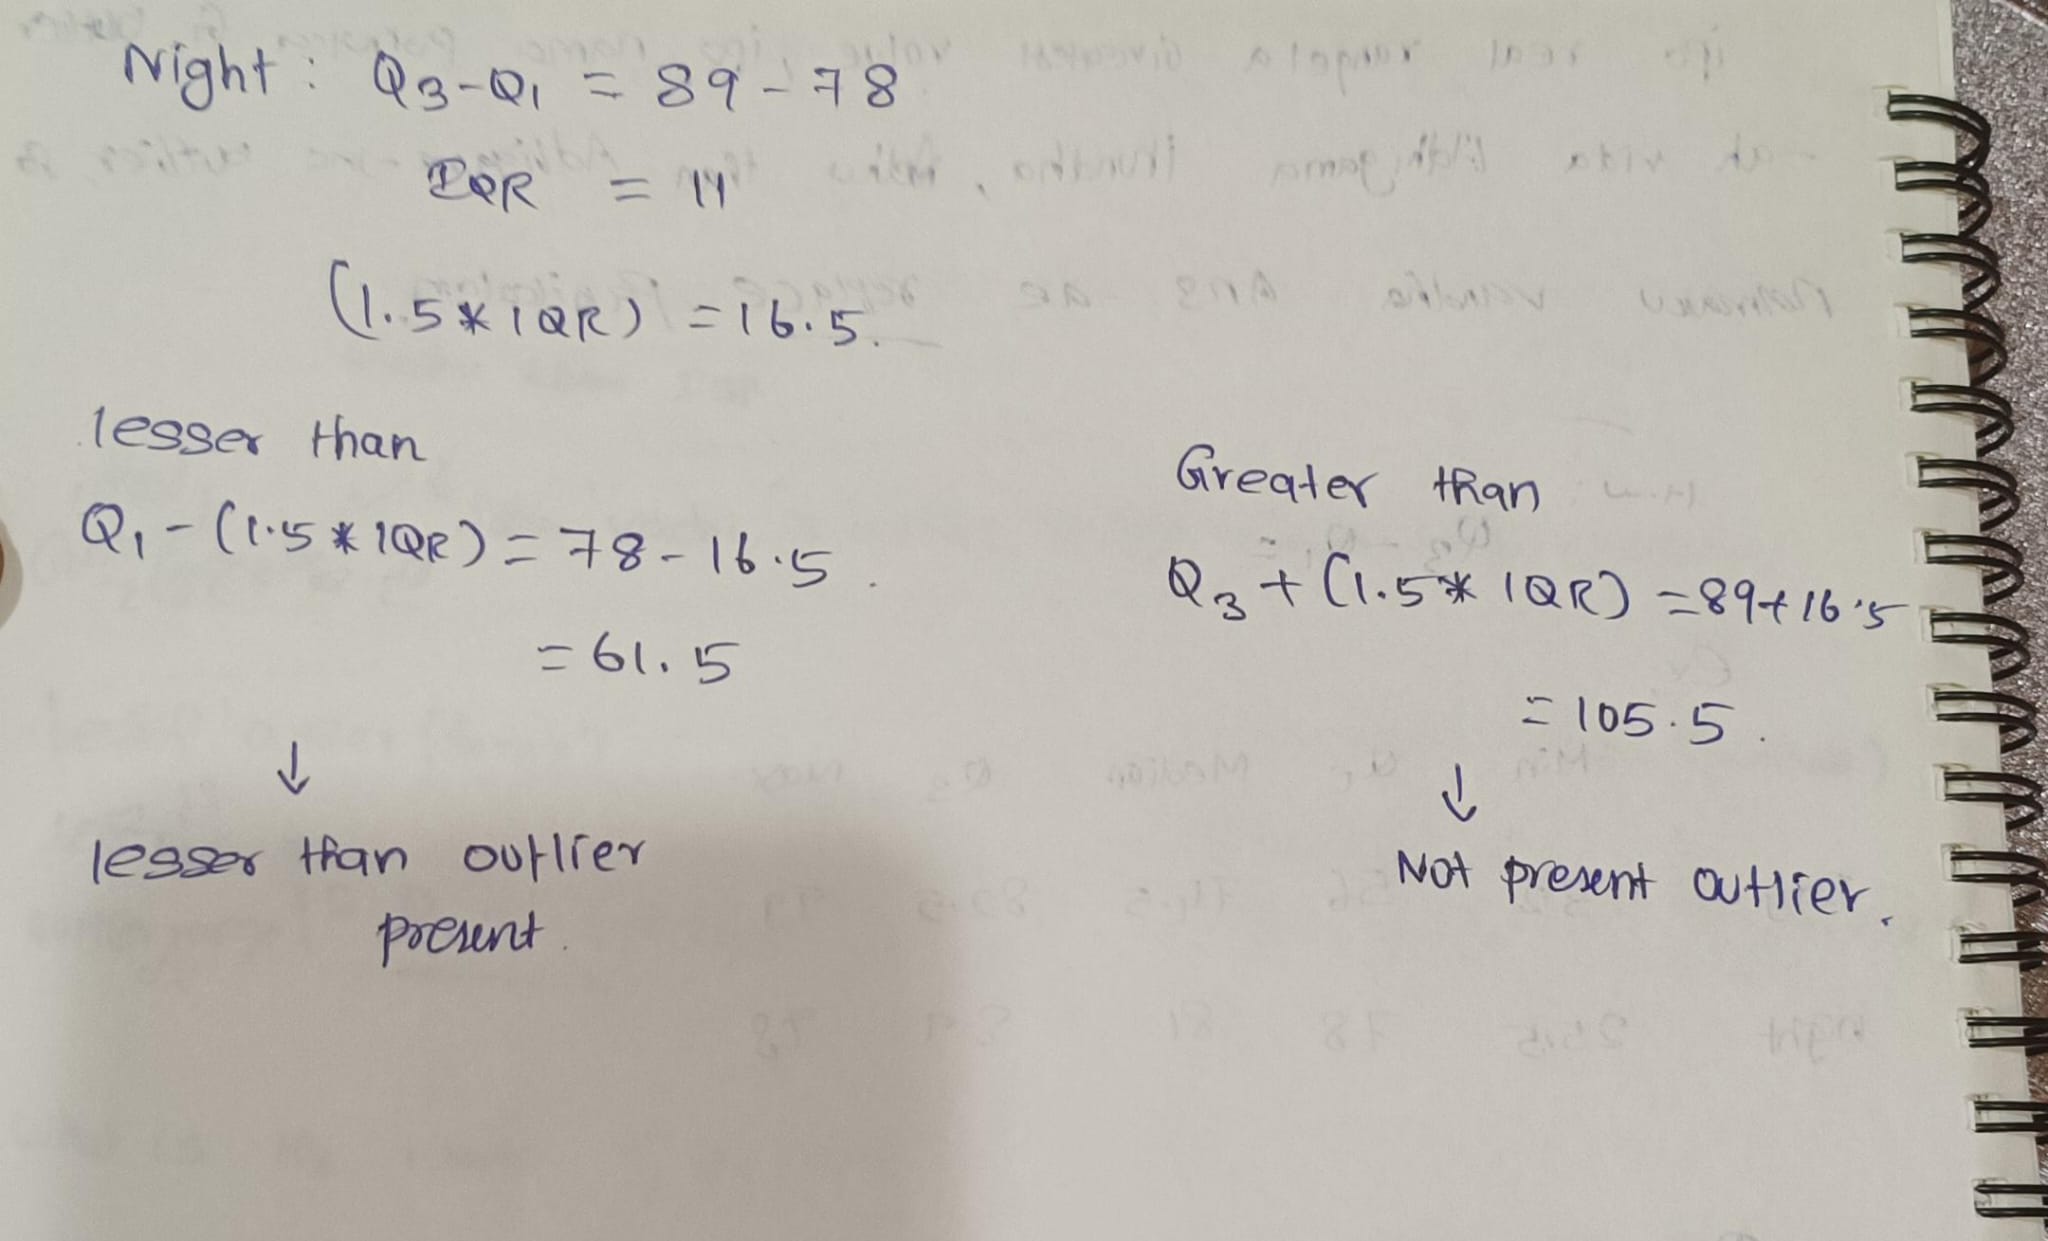 Night : Q3-Q1 = 89-78
IQR = 11
(1.5*IQR) = 16.5.
lesser than
Q1-(1.5*IQR) = 78-16.5
= 61.5
↓
lesser than outlier
present.
Greater than
Q3+(1.5*IQR) = 89+16.5
= 105.5.
↓
Not present outlier.